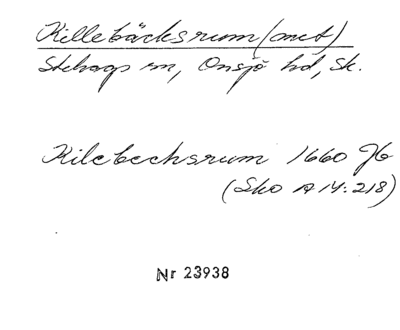 Killebäcksrum (met)
Stehags sn, Onsjö hd, Sk.
Kilebechsrum 1660 Jb
(Sko A 14:218)
Nr 23938